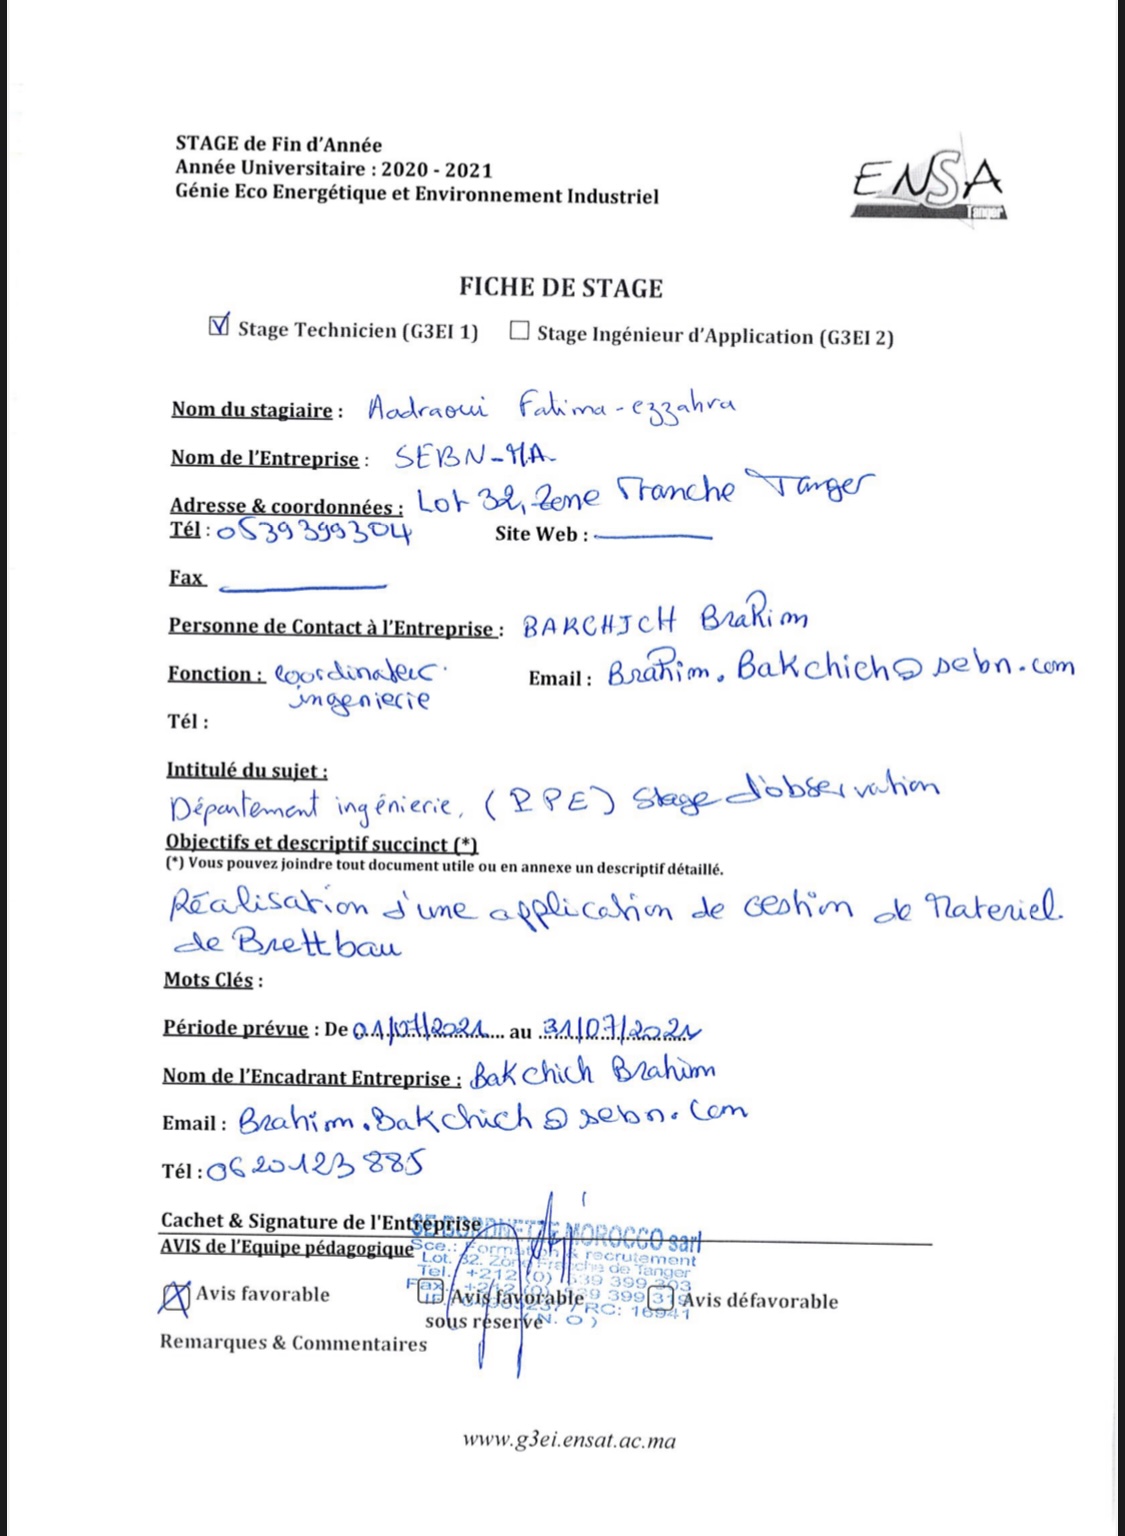 STAGE de Fin d'Année
Année Universitaire : 2020 - 2021
Génie Eco Energétique et Environnement Industriel
ENSA
Tanger
FICHE DE STAGE
Stage Technicien (G3EI 1) Stage Ingénieur d'Application (G3EI 2)
Nom du stagiaire : Aadraoui Fatima-ezzahra
Nom de l'Entreprise : SEBN-MA
Adresse & coordonnées : Lot 32, Zone Franche Tanger
Tél : 0539399304 Site Web :
Fax
Personne de Contact à l'Entreprise : BAKCHICH Brahim
Fonction : coordinateur Email : Brahim.Bakchich@sebn.com
ingenierie
Tél :
Intitulé du sujet :
Département ingénierie, (PPE) Stage d'observation
Objectifs et descriptif succinct (*)
(*) Vous pouvez joindre tout document utile ou en annexe un descriptif détaillé.
Réalisation d'une application de Gestion de Materiel.
de Brettbau
Mots Clés :
Période prévue : De 01/07/2021 au 31/07/2021
Nom de l'Encadrant Entreprise : Bakchich Brahim
Email : Brahim.Bakchich@sebn.com
Tél : 0620123885
Cachet & Signature de l'Entreprise
MOROCCO sarl
AVIS de l'Equipe pédagogique
Sce.: Formation & recrutement
Lot. 32. Zone Franche de Tanger
Tel. +212 (0) 539 399 303
Avis favorable Avis favorable Avis défavorable
Fax: +212 (0) 539 399 319
RC: 16941
sous réserve
(N. O)
Remarques & Commentaires
www.g3ei.ensat.ac.ma